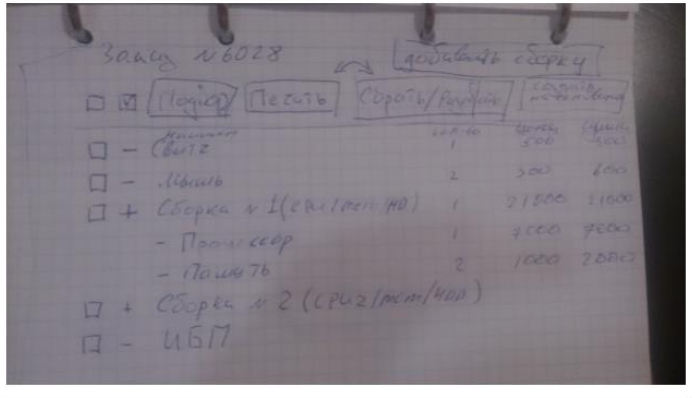 Заказ №6028 добавить сборку
Подбор Печать Собрать/Разобрать создать
кол-во цена
Свитч 1 500 500
- Мышь 2 300 600
+ Сборка №1 (CPU/mem/HD) 1 21000 21000
- Процессор 1 7000 7000
- Память 2 1000 2000
+ Сборка №2 (CPU2/mem/HDD)
- ИБП